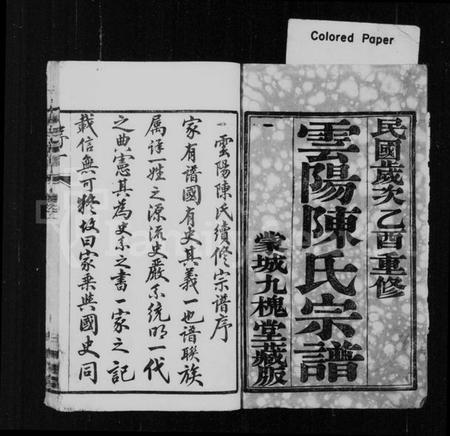 Colored Paper
民國歲次乙酉重修
雲陽陳氏宗譜
蒙城九槐堂藏版
一雲陽陳氏續修宗譜序
家有譜國有史其義一也譜聯族
属详一姓之源流史嚴系統明一代
之典憲其為史系之書一家之記
載信無可疑故曰家乘與國史同